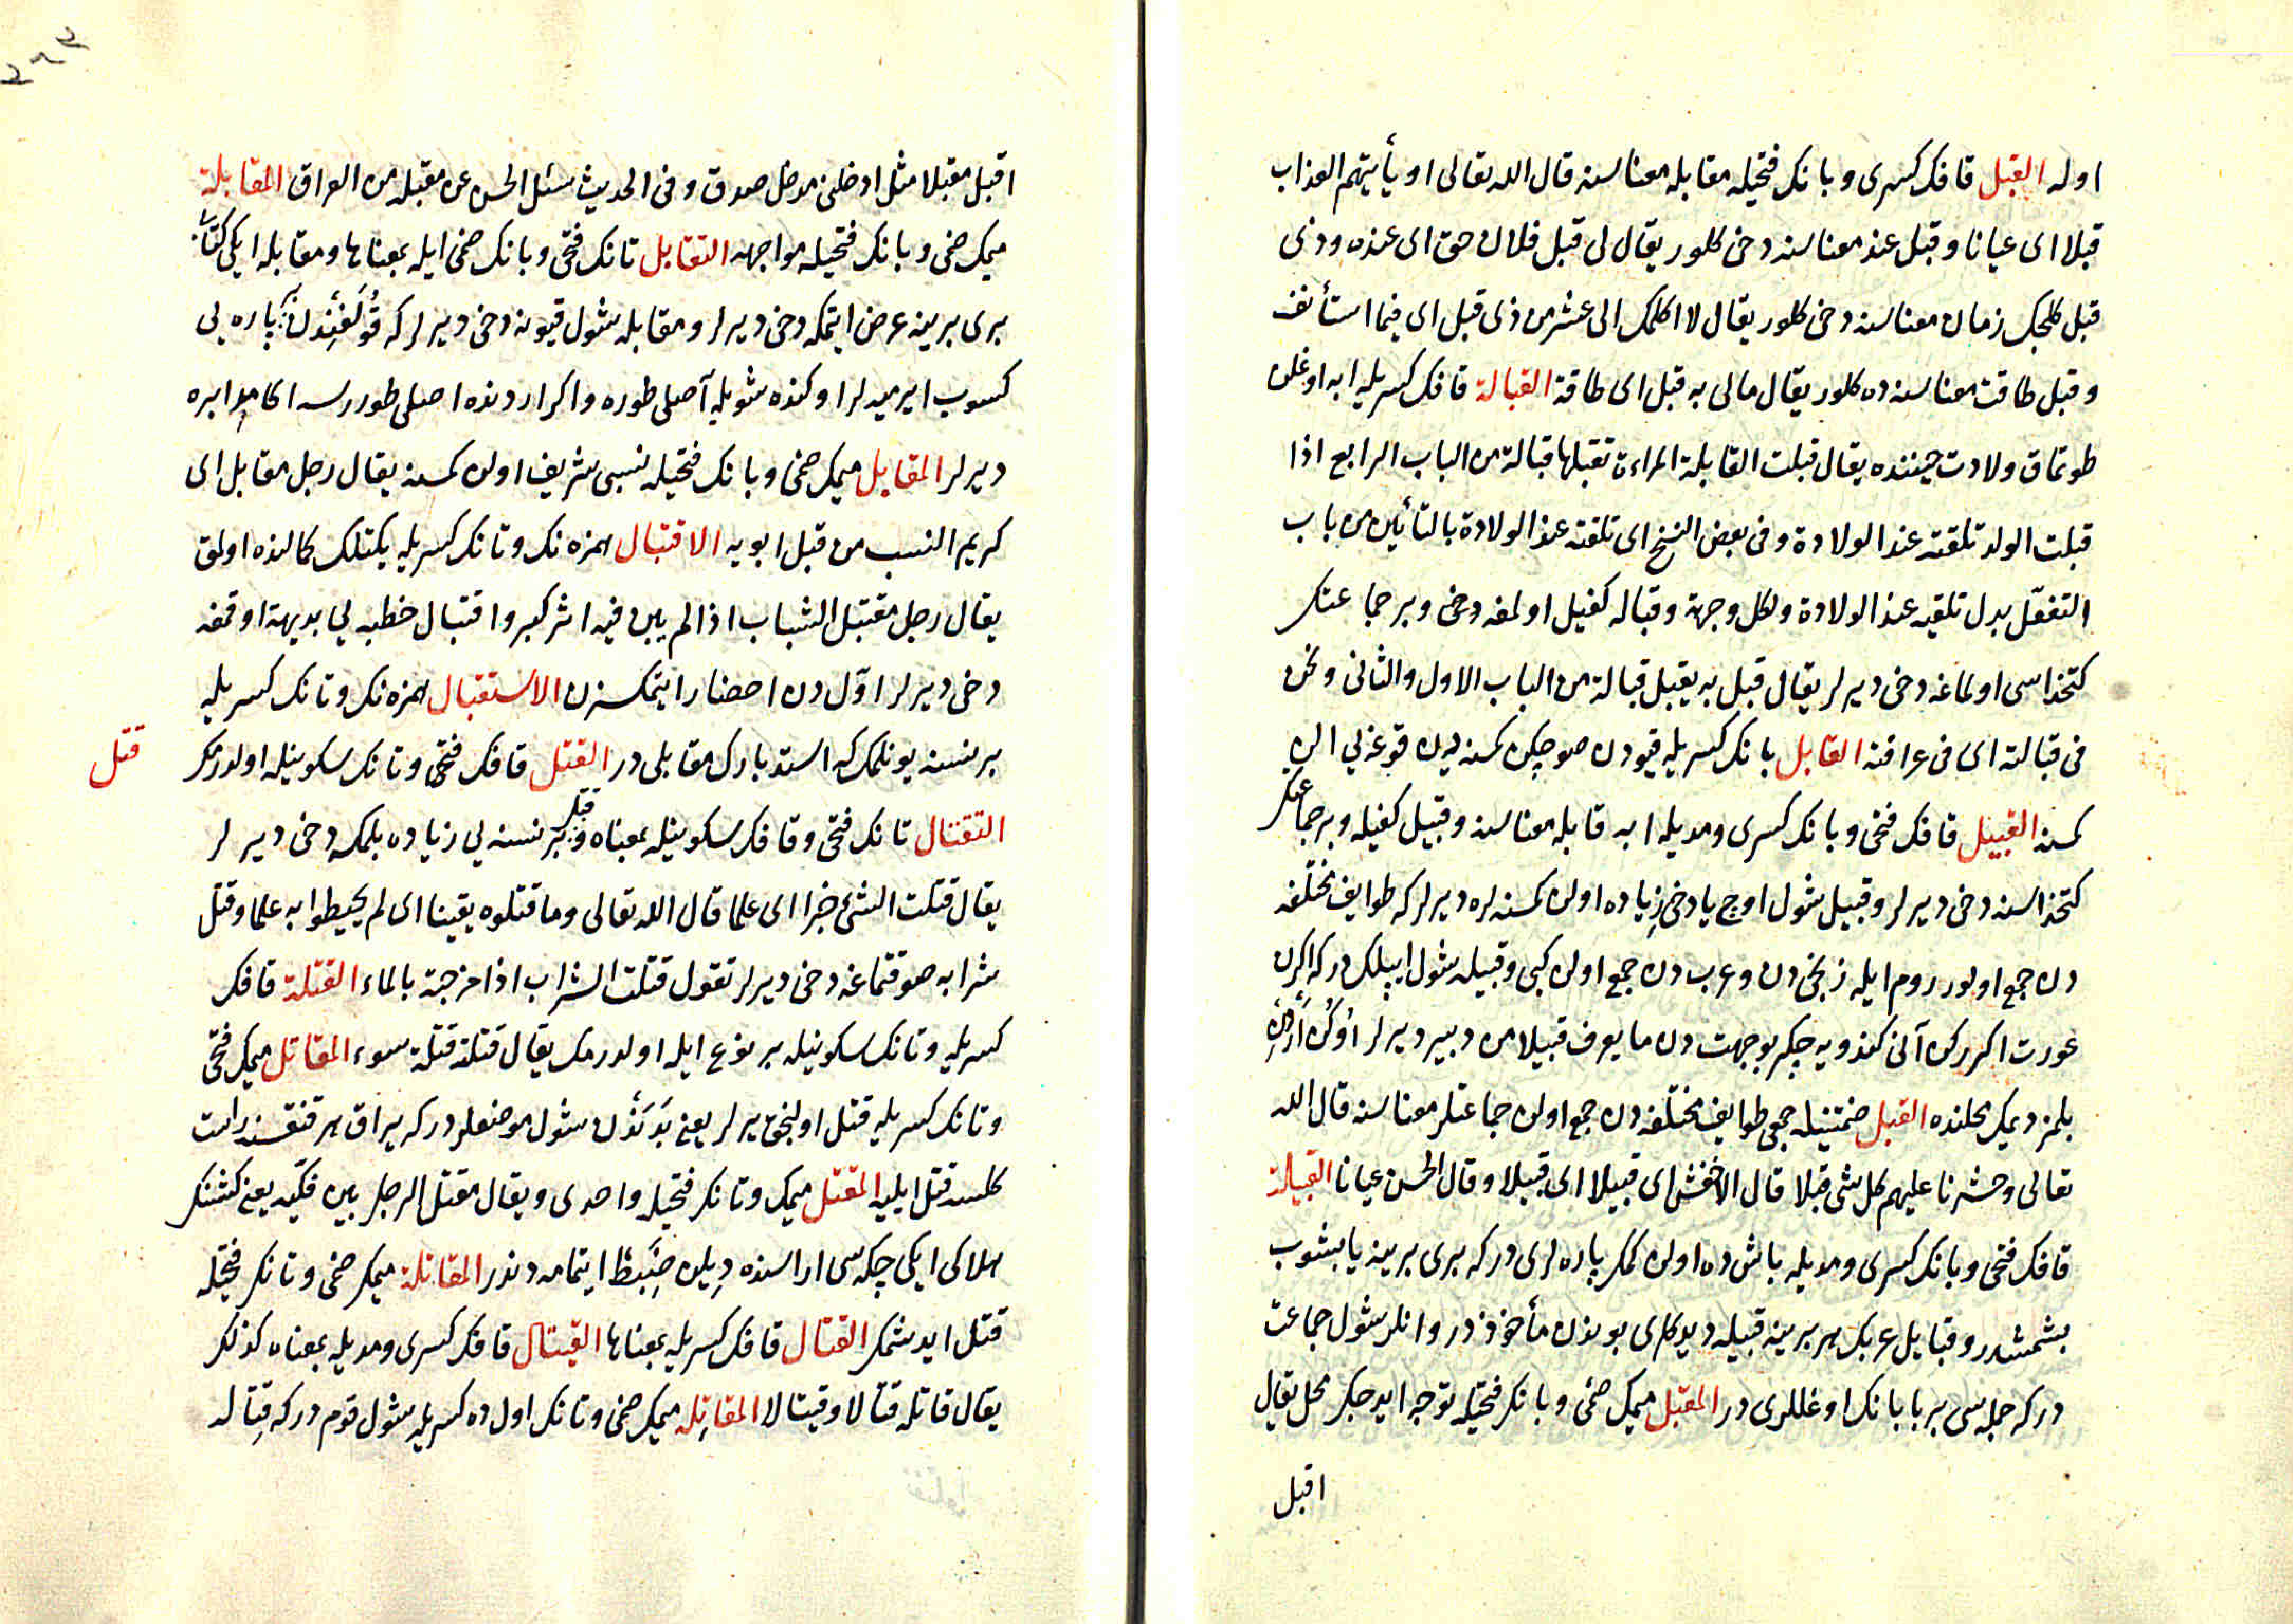 اوله القبل قافك كسرى و بانك فتحيله مقابله معناسنه قال الله تعالى او يأتيهم العذاب
قبلا اى عيانا و قبل عند معناسنه دخى كلور يقال لى قبل فلان حق اى عنده و ذى
قبل كلجك زمان معناسنه دخى كلور يقال لا اكلمك الى عشر من ذى قبل اى فيما استأنف
و قبل طاقت معناسنه ده كلور يقال مالى به قبل اى طاقة القبالة قافك كسريله ابه اوغلن
طوتمق ولادت حيننده يقال قبلت القابلة المراءة تقبلها قبالة من الباب الرابع اذا
قبلت الولد تلقته عند الولادة و فى بعض النسخ اى تلقته عند الولادة بالتأين من باب
التفعّل بدل تلقيه عند الولادة ولكل وجهة و قباله كفيل اولمغه دخى و بر جماعتك
كتخداسى اولماغه دخى ديرلر يقال قبل به يقبل قبالة من الباب الاول والثانى و نحن
فى قبالته اى فى عرافته القابل بانك كسريله قيودن صو چكن كمسنه يدن قوغه يى الن
كمسنه القبيل قافك فتحى و بانك كسرى و مديله ابه قابله معناسنه و قبيل كفيله و بر جماعتك
كتخداسنه دخى ديرلر و قبيل شول اوچ يا دخى زياده اولن كمسنه لره ديرلر كه طوايف مختلفه
دن جمع اولور روم ايله زنجى دن و عرب دن جمع اولن كبى و قبيله شول ايپلك در كه اكرن
عورت اكرركن آنى كندويه چكر بو جهت دن ما يعرف قبيلا من دبير ديرلر اوكن اردن
بلمز ديمك محلنده القبل ضمتينله جمعى طوايف مختلفه دن جمع اولن جماعتلر معناسنه قال الله
تعالى و حشرنا عليهم كل شئ قبلا قال الاخفش اى قبيلا اى قبيلا و قال الحسن عيانا القبيلة
قافك فتحى و بانك كسرى و مديله باش ده اولن كمك پاره لرى در كه برى برينه يابشوب
بتشمشدر و قبايل عربك هر برينه قبيله ديدكلرى بوندن مأخوذ در و انلر شول جماعت
در كه جمله سى بر بابانك اوغللرى در المقبل ميمك ضمى و بانك فتحيله توجه ايدجك محل يقال
اقبل
اقبل مقبلا مثل ادخلنى مدخل صدق و فى الحديث سئل الحسن عن مقبله من العراق المقابلة
ميمك ضمى و بانك فتحيله مواجهه التقابل تانك فتحى و بانك ضمى ايله بمعناها و مقابله ايكى كتابى
برى برينه عرض ايتمكه دخى ديرلر و مقابله شول قيونه دخى ديرلر كه قولغندن پاره يى
كسوب ايرميه لر اوكنده شويله آصلى طوره و اكر اردنده اصلى طوررسه اكا مدابره
ديرلر المقابل ميمك ضمى و بانك فتحيله نسبى شريف اولن كمسنه يقال رجل مقابل اى
كريم النسب من قبل ابويه الاقتبال همزه نك و تانك كسريله يكتلك كمالنده اولمق
يقال رجل مقتبل الشباب اذا لم يبن فيه اثر كبر و اقتبال خطبه يى بديهة اوقمغه
دخى ديرلر اوّل دن احضار ايتمكسزن الاستقبال همزه نك و تانك كسريله
بر نسنه يه يونلمك كه استدبارك مقابلى در القتل قافك فتحى و تانك سكونيله اولدرمك
قتل
التقتال تانك فتحى و قافك سكونيله بمعناه و قتل بر نسنه يى زياده بلمكه دخى ديرلر
يقال قتلت الشئ خبرا اى علما قال الله تعالى و ما قتلوه يقينا اى لم يحيطوا به علما و قتل
شرابه صو قتماغه دخى ديرلر تقول قتلت الشراب اذا مزجته بالماء القتلة قافك
كسريله و تانك سكونيله بر نوع ايله اولدرمك يقال قتله قتلة سوء المقاتل ميمك فتحى
و تانك كسريله قتل اولنجق يرلر يعنى بدندن شول موضعلر در كه يراق هر قنقسنه راست
كلسه قتل ايليه المقتل ميمك و تانك فتحيله واحدى و يقال مقتل الرجل بين فكيه يعنى كشنك
هلاكى ايكى چكه سى اراسنده ديلن ضبط ايتمامه دندر المقاتلة ميمك ضمى و تانك فتحيله
قتل ايدشمك القتال قافك كسريله بمعناها القيتال قافك كسرى و مديله بمعناه كذلك
يقال قاتله قتالا و قيتالا المقاتله ميمك ضمى و تانك اول ده كسريله شول قوم در كه قتاله